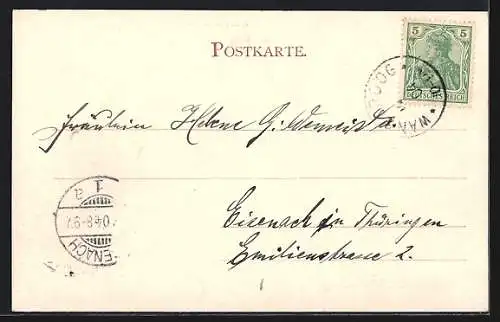 POSTKARTE.
5 5
DEUTSCHES REICH
WAN OOG
Fräulein Helene
Eisenach in Thüringen
Emilienstrasse 2.
ENACH
1 a